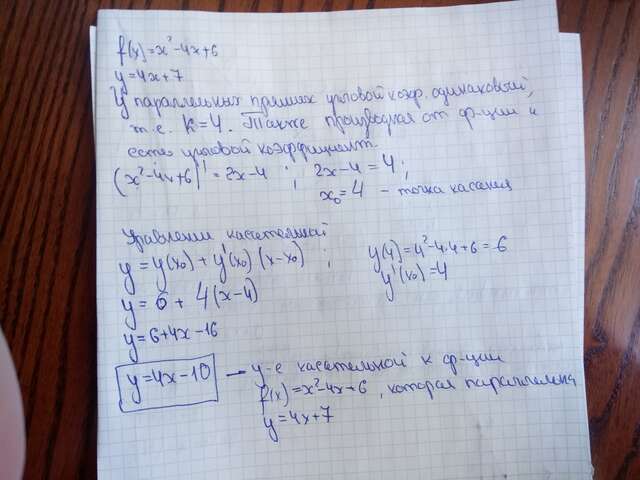 f(x)=x²-4x+6
y=4x+7
У параллельных прямых угловой коэф. одинаковый,
т.е. k=4. Также производная от ф-ции и
есть угловой коэффициент.
(x²-4x+6)'=2x-4 ; 2x-4=4;
x₀=4 - точка касания
Уравнении касательной
y=y(x₀)+y'(x₀)(x-x₀) ; y(4)=4²-4·4+6=6
y=6+4(x-4) y'(x₀)=4
y=6+4x-16
y=4x-10 - у-е касательной к ф-ции
f(x)=x²-4x+6, которая параллельна
y=4x+7